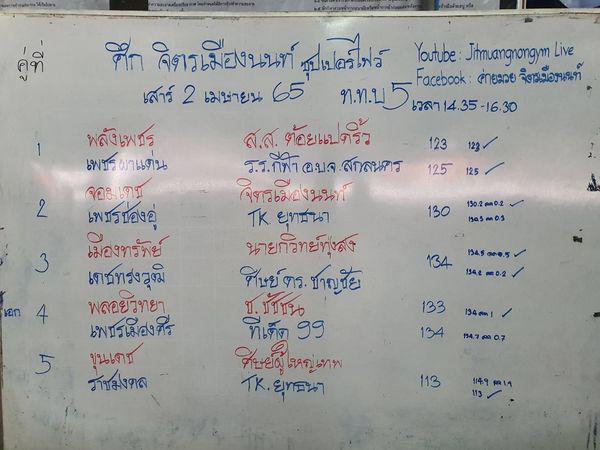 คู่ที่
ศึก จิตรเมืองนนท์ ซุปเปอร์ไฟว์
Youtube : Jitmuangnongym Live
Facebook : ค่ายมวย จิตรเมืองนนท์
เสาร์ 2 เมษายน 65 ท.ท.บ 5 เวลา 14.35 - 16.30
1 พลังเพชร ส.ส. ต้อยแปดริ้ว 123 123 ✓
เพชรผาแดน ร.ร.กีฬา อ.บ.จ. สกลนคร 125 125 ✓
2 จอมเดช จิตรเมืองนนท์ 130 130.2 ลด 0.2 ✓
เพชรช่องอู่ TK. ยุทธนา 130.3 ลด 0.3
3 เมืองทรัพย์ นายกวิทย์ทุ่งสง 134 134.5 ลด 0.5 ✓
เดชทรงวุฒิ ศิษย์ ดร. ชาญชัย 134.2 ลด 0.2 ✓
เอก 4 พลอยวิทยา ช. ชัชชน 133 134 ลด 1 ✓
เพชรเมืองศรี ทีเด็ด 99 134 134.7 ลด 0.7
5 ขุนเดช ศิษย์ผู้ใหญ่เทพ 113 114.9 ลด 1.9
ราชมงคล TK. ยุทธนา 113 ✓